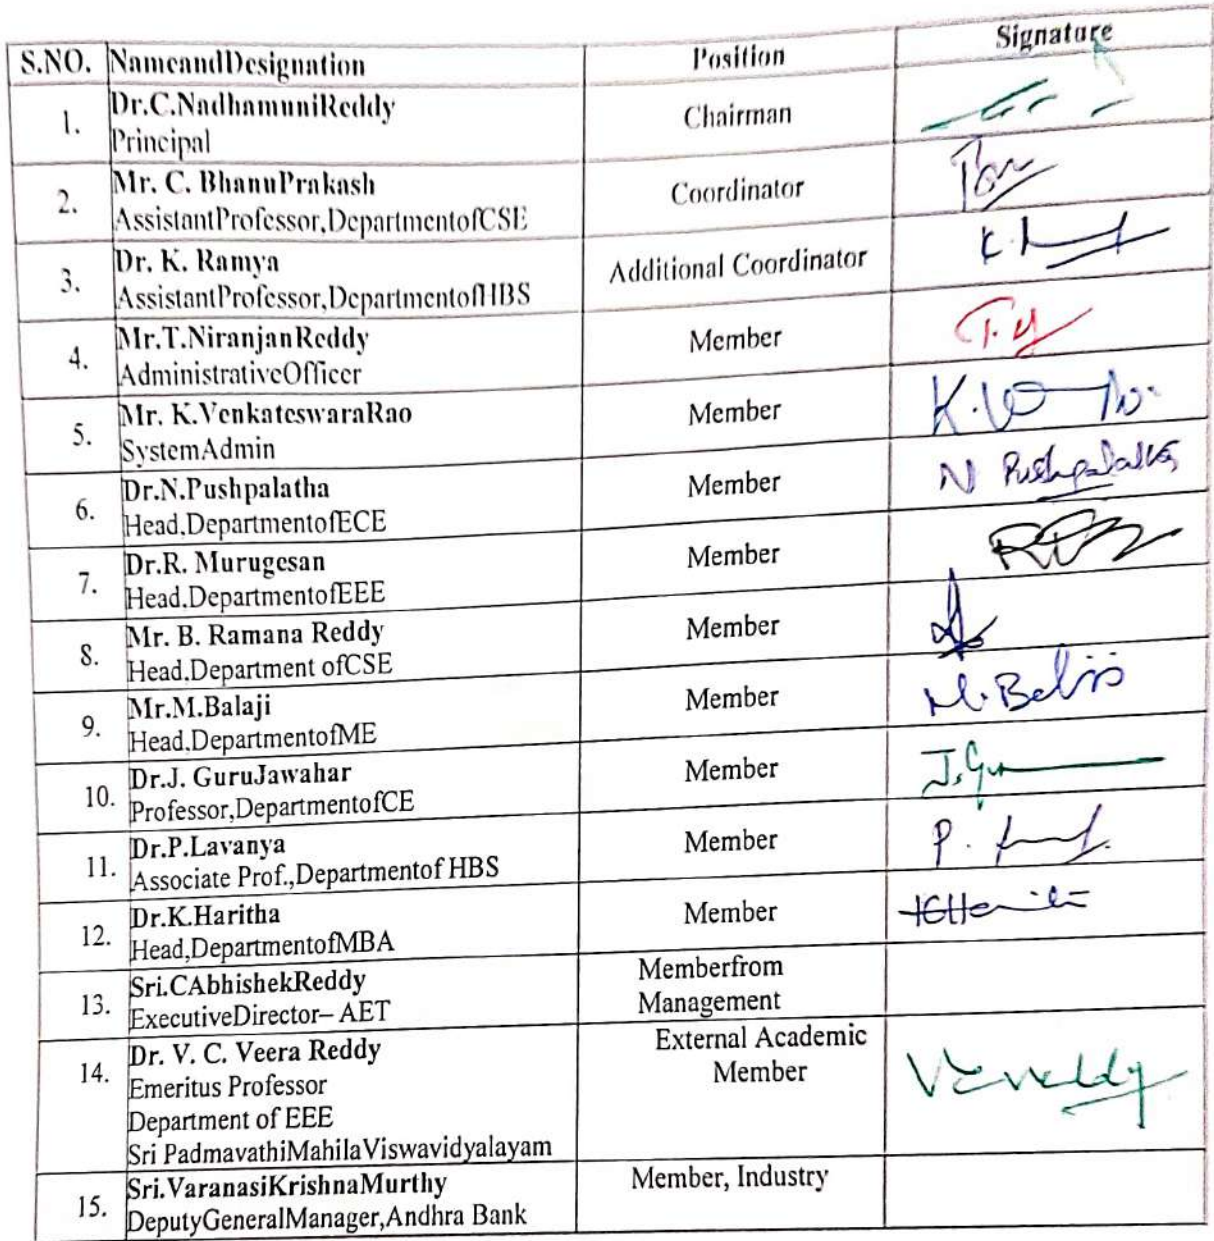 S.NO. NameandDesignation Position Signature
1. Dr.C.NadhamuniReddy
Principal Chairman
2. Mr. C. BhanuPrakash
AssistantProfessor,DepartmentofCSE Coordinator
3. Dr. K. Ramya
AssistantProfessor,DepartmentofHBS Additional Coordinator
4. Mr.T.NiranjanReddy
AdministrativeOfficer Member
5. Mr. K.VenkateswaraRao
SystemAdmin Member
6. Dr.N.Pushpalatha
Head,DepartmentofECE Member N Pushpalatha
7. Dr.R. Murugesan
Head,DepartmentofEEE Member
8. Mr. B. Ramana Reddy
Head,Department ofCSE Member
9. Mr.M.Balaji
Head,DepartmentofME Member M.Balaji
10. Dr.J. GuruJawahar
Professor,DepartmentofCE Member
11. Dr.P.Lavanya
Associate Prof.,Departmentof HBS Member
12. Dr.K.Haritha
Head,DepartmentofMBA Member
13. Sri.CAbhishekReddy
ExecutiveDirector– AET
Memberfrom
Management
14. Dr. V. C. Veera Reddy
Emeritus Professor
Department of EEE
Sri PadmavathiMahilaViswavidyalayam
External Academic
Member
15. Sri.VaranasiKrishnaMurthy
DeputyGeneralManager,Andhra Bank
Member, Industry